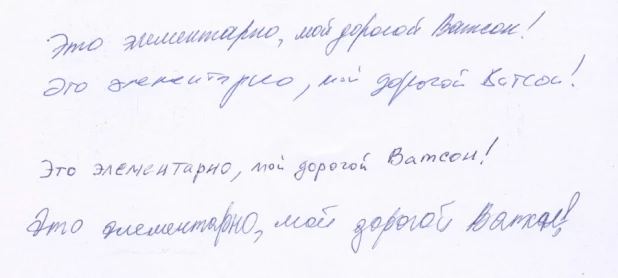 Это элементарно, мой дорогой Ватсон!
Это элементарно, мой дорогой Ватсон!
Это элементарно, мой дорогой Ватсон!
Это элементарно, мой дорогой Ватсон!